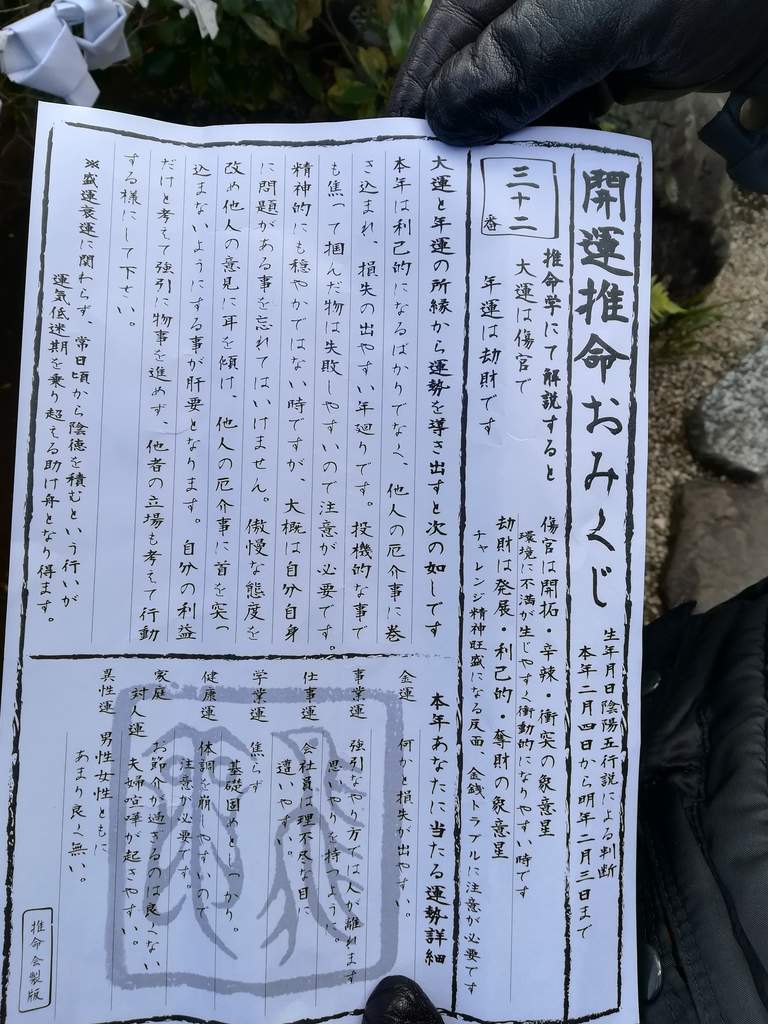 開運推命おみくじ
生年月日陰陽五行説による判断
本年二月四日から明年二月三日まで
三十二
番
推命学にて解説すると
大運は傷官で
年運は劫財です
傷官は開拓・辛辣・衝突の象意星
環境に不満が生じやすく衝動的になりやすい時です
劫財は発展・利己的・奪財の象意星
チャレンジ精神旺盛になる反面、金銭トラブルに注意が必要です
大運と年運の所縁から運勢を導き出すと次の如しです
本年は利己的になるばかりでなく、他人の厄介事に巻
き込まれ、損失の出やすい年廻りです。投機的な事で
も焦って掴んだ物は失敗しやすいので注意が必要です。
精神的にも穏やかではない時ですが、大概は自分自身
に問題がある事を忘れてはいけません。傲慢な態度を
改め他人の意見に耳を傾け、他人の厄介事に首を突っ
込まないようにする事が肝要となります。自分の利益
だけと考えて強引に物事を進めず、他者の立場も考えて行動
する様にして下さい。
※盛運衰運に関わらず、常日頃から陰徳を積むという行いが
運気低迷期を乗り超える助け舟となり得ます。
本年あなたに当たる運勢詳細
金運 何かと損失が出やすい。
事業運 強引なやり方では人が離れます
思いやりを持つように。
仕事運 会社員は理不尽な目に
遭いやすい。
学業運 焦らず
基礎固めをしっかり。
健康運 体調を崩しやすいので
注意が必要です。
家庭 お節介が過ぎるのは良くない
対人運 夫婦喧嘩が起きやすい。
異性運 男性女性ともに
あまり良く無い。
推命会製版